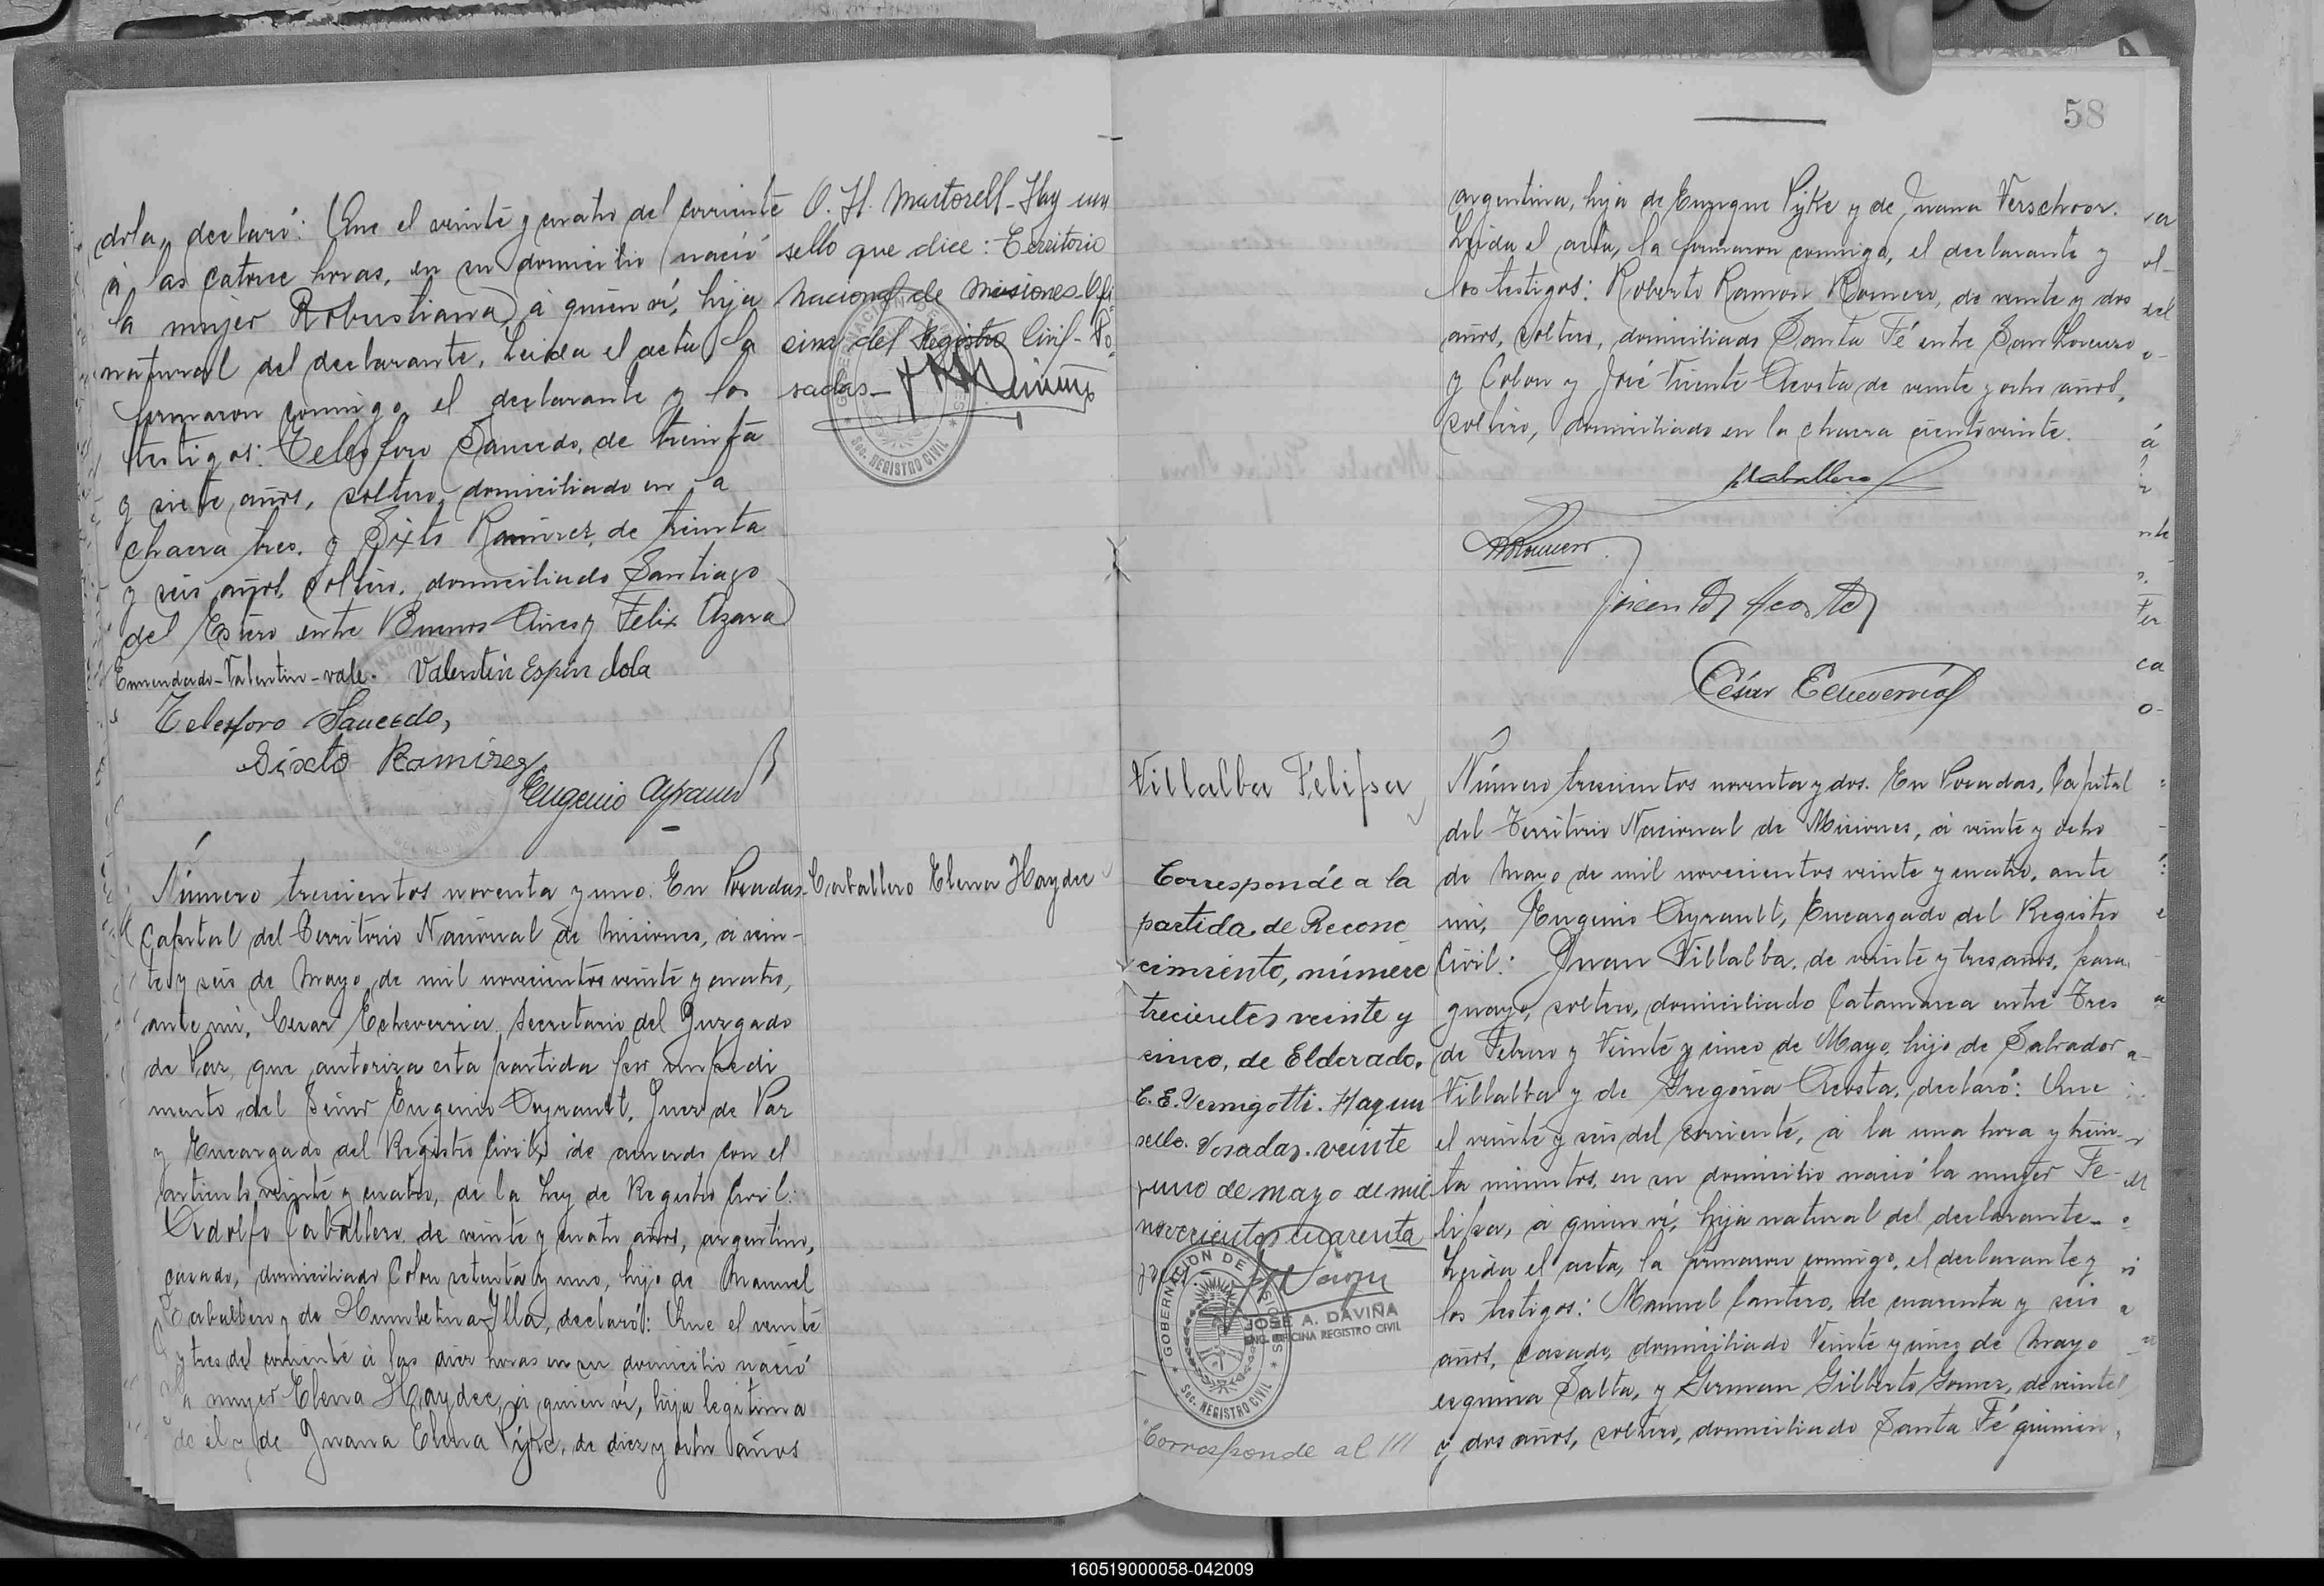 dola, declaró: Que el veinte y cuatro del corriente
á las catorce horas, en su domicilio nació
la mujer Robustiana, á quien ví, hija
natural del declarante. Leida el acta, la
firmaron conmigo, el declarante y los
testigos: Telesforo Saucedo, de treinta
y siete años, soltero, domiciliado en la
chacra tres, y Sixto Ramirez, de treinta
y seis años, soltero, domiciliado Santiago
del Estero entre Buenos Aires y Felix Azara
Enmendado-Valentin-vale. Valentin Espindola
Telesforo Saucedo,
Sixto Ramirez
Eugenio Ayrault
O. H. Martorell-Hay un
sello que dice: Territorio
Nacional de Misiones-Ofi-
cina del Registro Civil-Po-
sadas-
SEC. REGISTRO CIVIL
Número trescientos noventa y uno. En Posadas,
Capital del Territorio Nacional de Misiones, á vein-
te y seis de Mayo de mil novecientos veinte y cuatro,
ante mí, Cesar Echeverria, Secretario del Juzgado
de Paz, que autoriza esta partida por impedi
mento del Señor Eugenio Ayrault, Juez de Paz
y Encargado del Registro Civil, de acuerdo con el
artículo veinte y cuatro, de la Ley de Registro Civil:
Adolfo Caballero, de veinte y cuatro años, argentino,
casado, domiciliado Colon setenta y uno, hijo de Manuel
Caballero y de Humbelina Illa, declaró: Que el veinte
y tres del corriente á las diez horas en su domicilio nació
la mujer Elena Haydee, á quien ví, hija legítima
de él y de Juana Elena Pyke, de diez y ocho años
Caballero Elena Haydee
58
argentina, hija de Enrique Pyke y de Juana Verschoor.
Leida el acta, la firmaron conmigo, el declarante y
los testigos: Roberto Ramon Romero, de veinte y dos
años, soltero, domiciliado Santa Fé entre San Lorenzo
y Colon y José Vicente Acosta de veinte y ocho años,
soltero, domiciliado en la chacra ciento veinte.
ACaballero
RRomero
César Echeverría
Villalba Felipa
Corresponde a la
partida de Recono
cimiento, número
trecientos veinte y
cinco, de Eldorado.
C. E. Vernigotti. Hay un
sello. Posadas, veinte
y uno de mayo de mil
novecientos cuarenta
GOBERNACION DE MISIONES
SEC. REGISTRO CIVIL
JOSE A. DAVIÑA
ENC. OFICINA REGISTRO CIVIL
"Corresponde al III
Número trescientos noventa y dos. En Posadas, Capital
del Territorio Nacional de Misiones, á veinte y ocho
de Mayo de mil novecientos veinte y cuatro, ante
mí, Eugenio Ayrault, Encargado del Registro
Civil: Juan Villalba, de veinte y tres años, para
guayo, soltero, domiciliado Catamarca entre Tres
de Febrero y Veinte y cinco de Mayo, hijo de Salvador
Villalba y de Gregoria Acosta, declaró: Que
el veinte y seis del corriente, á la una hora y trein-
ta minutos, en su domicilio nació la mujer Fe-
lipa, á quien ví, hija natural del declarante-
Leida el acta, la firmaron conmigo, el declarante y
los testigos: Manuel Cantero, de cuarenta y seis
años, casado, domiciliado Veinte y cinco de Mayo
esquina Salta, y German Gilberto Gomez, de veinte
y dos años, soltero, domiciliado Santa Fé quinien
160519000058-042009